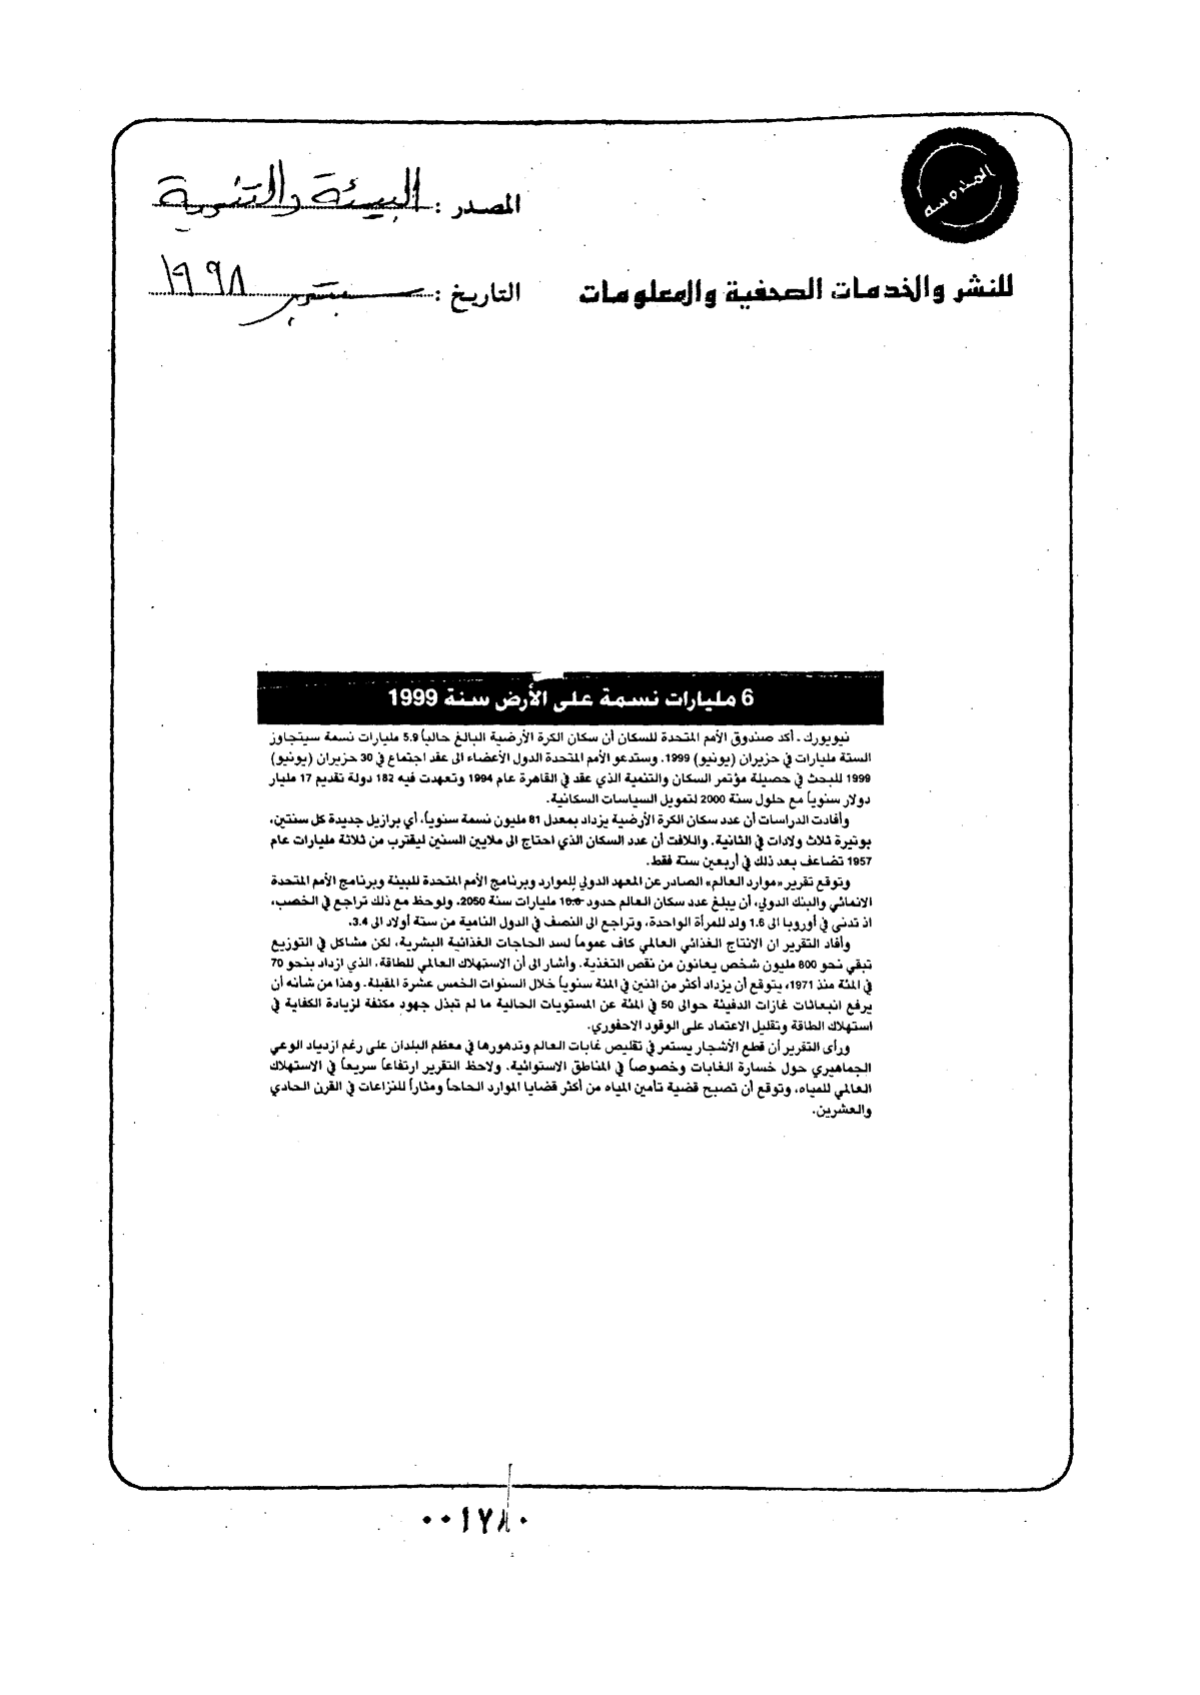 المصدر : البيئة والتنمية
للنشر والخدمات الصحفية والمعلومات
التاريخ : سبتمبر ١٩٩٨
6 مليارات نسمة على الأرض سنة 1999
نيويورك ـ أكد صندوق الأمم المتحدة للسكان أن سكان الكرة الأرضية البالغ حالياً 5.9 مليارات نسمة سيتجاوز
الستة مليارات في حزيران (يونيو) 1999. وستدعو الأمم المتحدة الدول الأعضاء الى عقد اجتماع في 30 حزيران (يونيو)
1999 للبحث في حصيلة مؤتمر السكان والتنمية الذي عقد في القاهرة عام 1994 وتعهدت فيه 182 دولة تقديم 17 مليار
دولار سنوياً مع حلول سنة 2000 لتمويل السياسات السكانية.
وأفادت الدراسات أن عدد سكان الكرة الأرضية يزداد بمعدل 81 مليون نسمة سنوياً، أي برازيل جديدة كل سنتين،
بوتيرة ثلاث ولادات في الثانية. واللافت أن عدد السكان الذي احتاج الى ملايين السنين ليقترب من ثلاثة مليارات عام
1957 تضاعف بعد ذلك في أربعين سنة فقط.
وتوقع تقرير «موارد العالم» الصادر عن المعهد الدولي للموارد وبرنامج الأمم المتحدة للبيئة وبرنامج الأمم المتحدة
الانمائي والبنك الدولي، أن يبلغ عدد سكان العالم حدود مليارات سنة 2050. ولوحظ مع ذلك تراجع في الخصب،
اذ تدنى في أوروبا الى 1.6 ولد للمرأة الواحدة، وتراجع الى النصف في الدول النامية من ستة أولاد الى 3.4.
وأفاد التقرير ان الانتاج الغذائي العالمي كاف عموماً لسد الحاجات الغذائية البشرية، لكن مشاكل في التوزيع
تبقي نحو 800 مليون شخص يعانون من نقص التغذية. وأشار الى أن الاستهلاك العالمي للطاقة، الذي ازداد بنحو 70
في المئة منذ 1971، يتوقع أن يزداد أكثر من اثنين في المئة سنوياً خلال السنوات الخمس عشرة المقبلة. وهذا من شأنه أن
يرفع انبعاثات غازات الدفيئة حوالى 50 في المئة عن المستويات الحالية ما لم تبذل جهود مكثفة لزيادة الكفاية في
استهلاك الطاقة وتقليل الاعتماد على الوقود الاحفوري.
ورأى التقرير أن قطع الأشجار يستمر في تقليص غابات العالم وتدهورها في معظم البلدان على رغم ازدياد الوعي
الجماهيري حول خسارة الغابات وخصوصاً في المناطق الاستوائية. ولاحظ التقرير ارتفاعاً سريعاً في الاستهلاك
العالمي للمياه، وتوقع أن تصبح قضية تأمين المياه من أكثر قضايا الموارد الحاحاً ومثاراً للنزاعات في القرن الحادي
والعشرين.
٠٠١٧٨٠